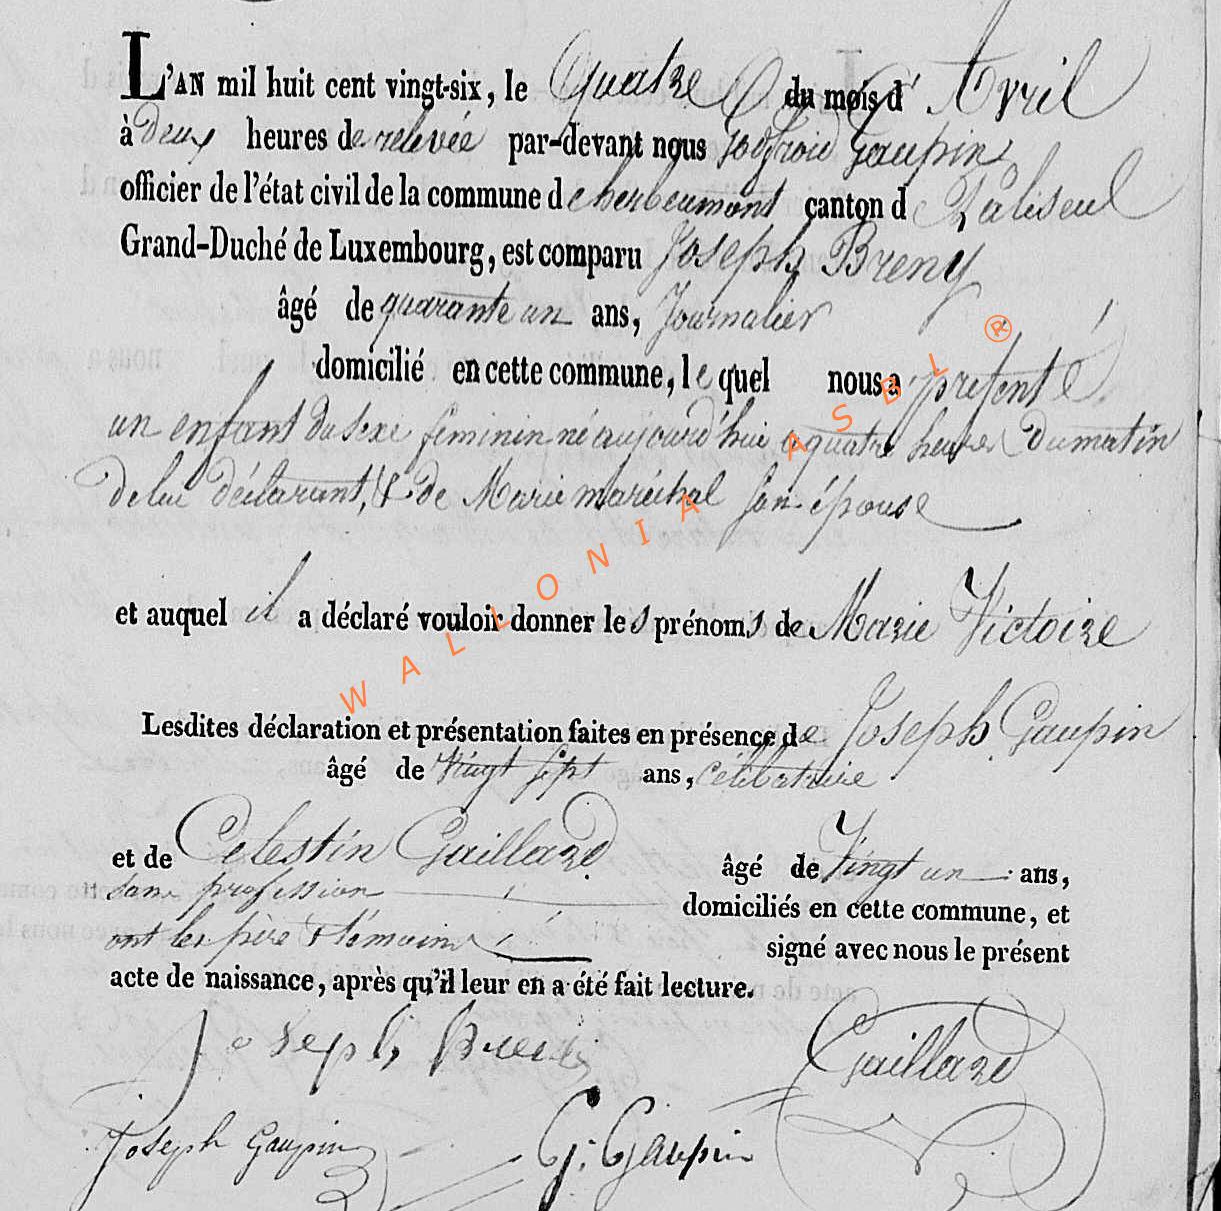 L'AN mil huit cent vingt-six, le Quatre du mois d'Avril
à deux heures de relevée par-devant nous Godfroid Gaupin
officier de l'état civil de la commune de herbeumont canton de Paliseul
Grand-Duché de Luxembourg, est comparu Joseph Breny
âgé de quarante un ans, Journalier
domicilié en cette commune, le quel nous a présenté
un enfant du sexe féminin né aujourd'hui a quatre heures du matin
de lui déclarant, & de Marie maréchal son épouse
et auquel il a déclaré vouloir donner les prénoms de Marie Victoire
Lesdites déclaration et présentation faites en présence de Joseph Gaupin
âgé de Vingt sept ans, célibataire
et de Celestin Gaillard âgé de Vingt un ans,
sans profession domiciliés en cette commune, et
ont les père & témoins signé avec nous le présent
acte de naissance, après qu'il leur en a été fait lecture.
Joseph Gaillard
Joseph Gaupin G. Gaupin
WALLONIA ASBL ®